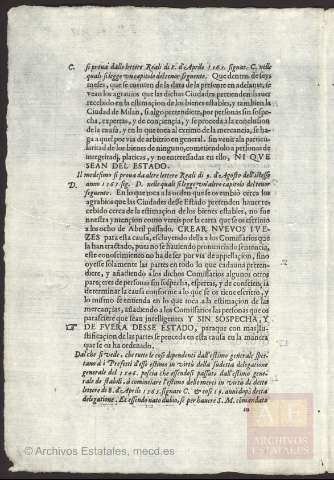 C. si proua dalle lettere Reali di 8. d'Aprile 1561. signat. C. nelle
quali si legge vn capitolo del tenor seguente. Que dentro de seys
meses, que se cuenten de la data de la presente en adelante, se
vean los agrauios que las dichas Ciudades pretenden hauer
recebido en la estimacion de los bienes estables, y tambien la
Ciudad de Milan, si algo pretendiere, por personas sin sospe-
cha, expertas, y de conciencia, y se proceda a la conclusion
de la causa, y en lo que toca al extimo de la mercancia, se ha-
ga a quel por via de arbitrio en general. sin venir a la particu-
laridad de los bienes de ninguno, cometiendolo a personas de
integridad, platicas, y no interessadas en ello, NI QUE
SEAN DEL ESTADO.
Il medesimo si proua da altre lettere Reali di 9. de Agosto dell'istesso
D. anno 1561. sig. D. nelle quali si legge vn'altro capitolo del tenor
seguente. En lo que toca a la orden que se ha embiò cerca los
agrauios que las Ciudades desse Estado pretenden hauer re-
cebido cerca de la estimacion de los bienes estables, no fue
nuestra yntencion como vereis por la carta que se os escriuio
a los ocho de Abril passado. CREAR NUEVOS IVE-
ZES para esta causa, escluyendo della a los Comissarios que
la han tractado, pues no se hauiendo pronunciado sentencia,
este conoscimiento no ha de ser por via de appellacion, sino
oyesse solamente las partes en todo lo que cadauna preten-
diere, y añadiendo a los dichos Comissarios algunos otros
pare; eres de personas sin sospecha, expertas, y de conscien; ia
determinar la causa conforme a lo que se os tiene escrito, y
lo mismo se entienda en lo que toca a la estimacion de las
mercancias, añadiendo a los Comissarios las personas que os
paresciere que sean inteligentes Y SIN SOSPECHA, Y
DE FUERA DESSE ESTADO, paraque con mas jus-
tificacion de las partes se proceda en esta causa en la manera
que se os ha ordenado.
Dal che si vede, che tutte le cose dependenti dall'estimo generale spet-
tano à i Prefetti d'esso estimo in virtù della sudetta delegatione
generale del 1546. poscia che essendosi passato dall'estimo gene-
rale de stabili, à cominciare l'estimo delle merci in virtù de dette
lettere di 8. d'Aprile 1561. signate C. & così 15. anni dopò detta
delegatione. Et essendo nato dubio, se per hauere S. M. comandato
© Archivos Estatales, mecd.es
ARCHIVOS
ESTATALES